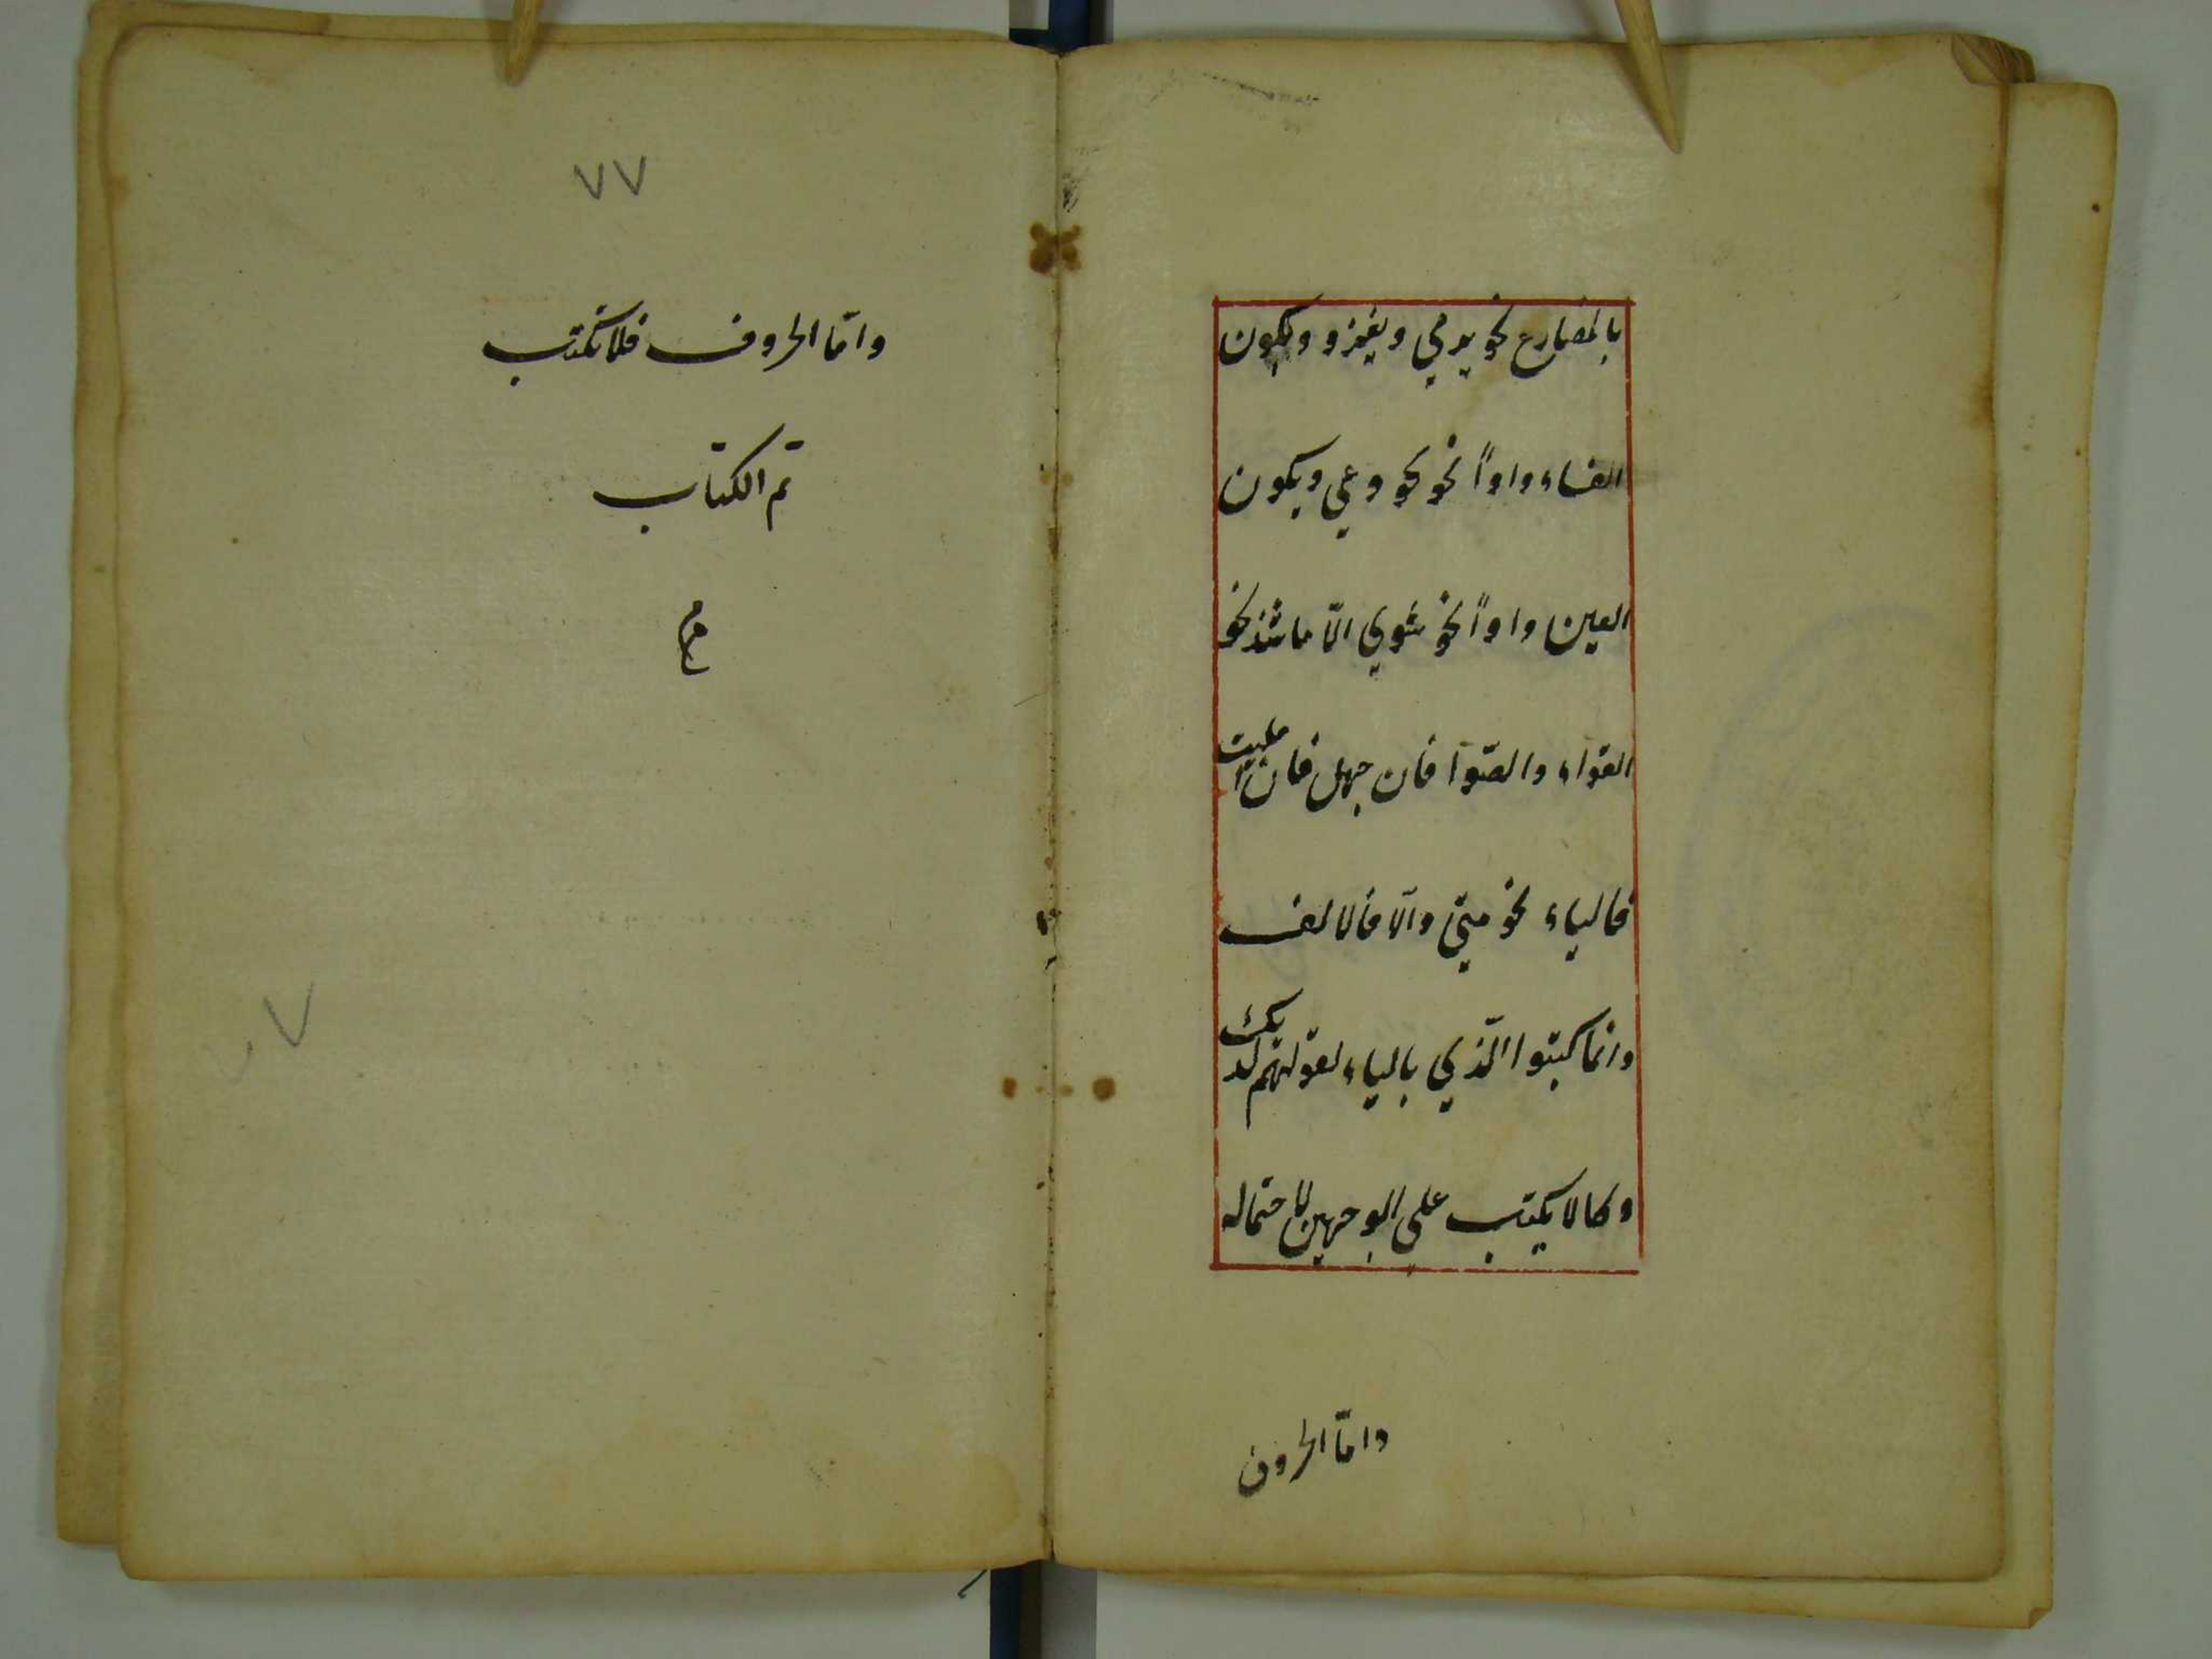 بالمضارع نحو يرمي ويغزو وبكون
الفاء واواً نحو نحو وعي وبكون
العين واواً نحو شوي الّا ما شذ نحو
القوآء والصّوآ فان جهل فان امليت
فالياء نحو متيّ والّا فالالف
وانما كتبوا الّذي بالياء لقولهم لديك
وكالا يكتب علي الوجهين لاحتماله
وامّا الحروف
٧٧
وامّا الحروف فلا تكتب
تم الكتاب
م
٧